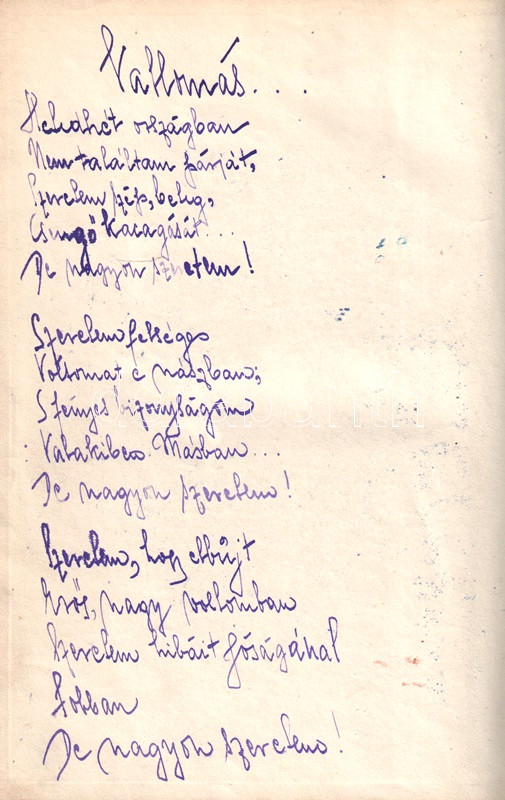 Vallomás...
Hetedhét országban
Nem találtam párját,
Szeretem szép, beteg,
Csengő kacagását...
De nagyon szeretem!
Szeretem fölséges
Voltomat e nászban;
S fényes bizonyságom
Valakiben. Másban...
De nagyon szeretem!
Szeretem, hogy elbújt
Erős, nagy voltomban
Szeretem hibáit jóságánál
Jobban
De nagyon szeretem!